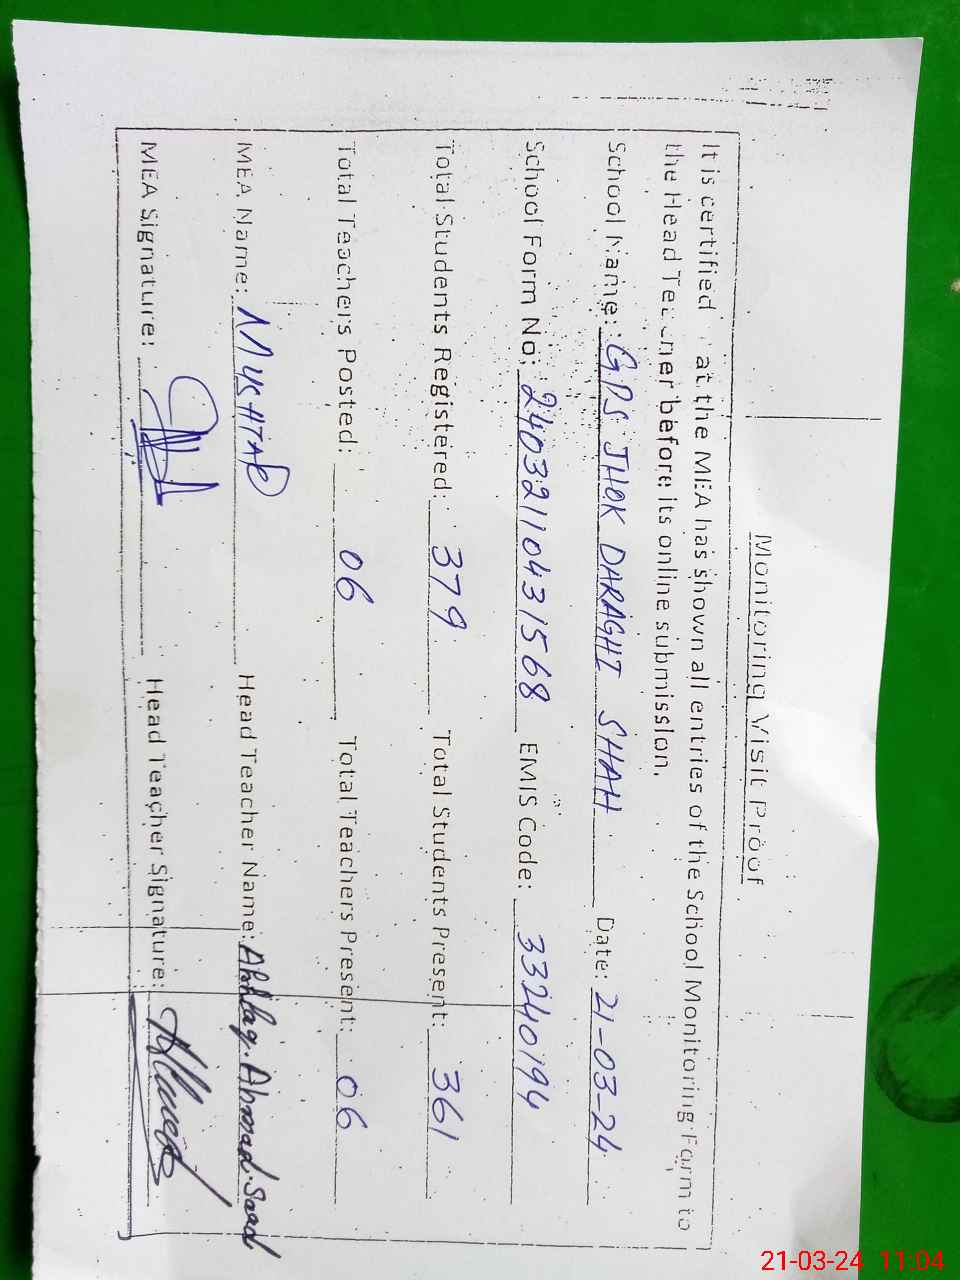 Monitoring Visit Proof
It is certified that the MEA has shown all entries of the School Monitoring Form to
the Head Teacher before its online submission.
School Name: GPS JHOK DARAGHI SHAH Date: 21-03-24
School Form No: 24032110431568 EMIS Code: 33240194
Total Students Registered: 379 Total Students Present: 361
Total Teachers Posted: 06 Total Teachers Present: 06
MEA Name: MUSHTAQ Head Teacher Name: Akhlaq Ahmad Saad
MEA Signature: Head Teacher Signature:
21-03-24 11:04